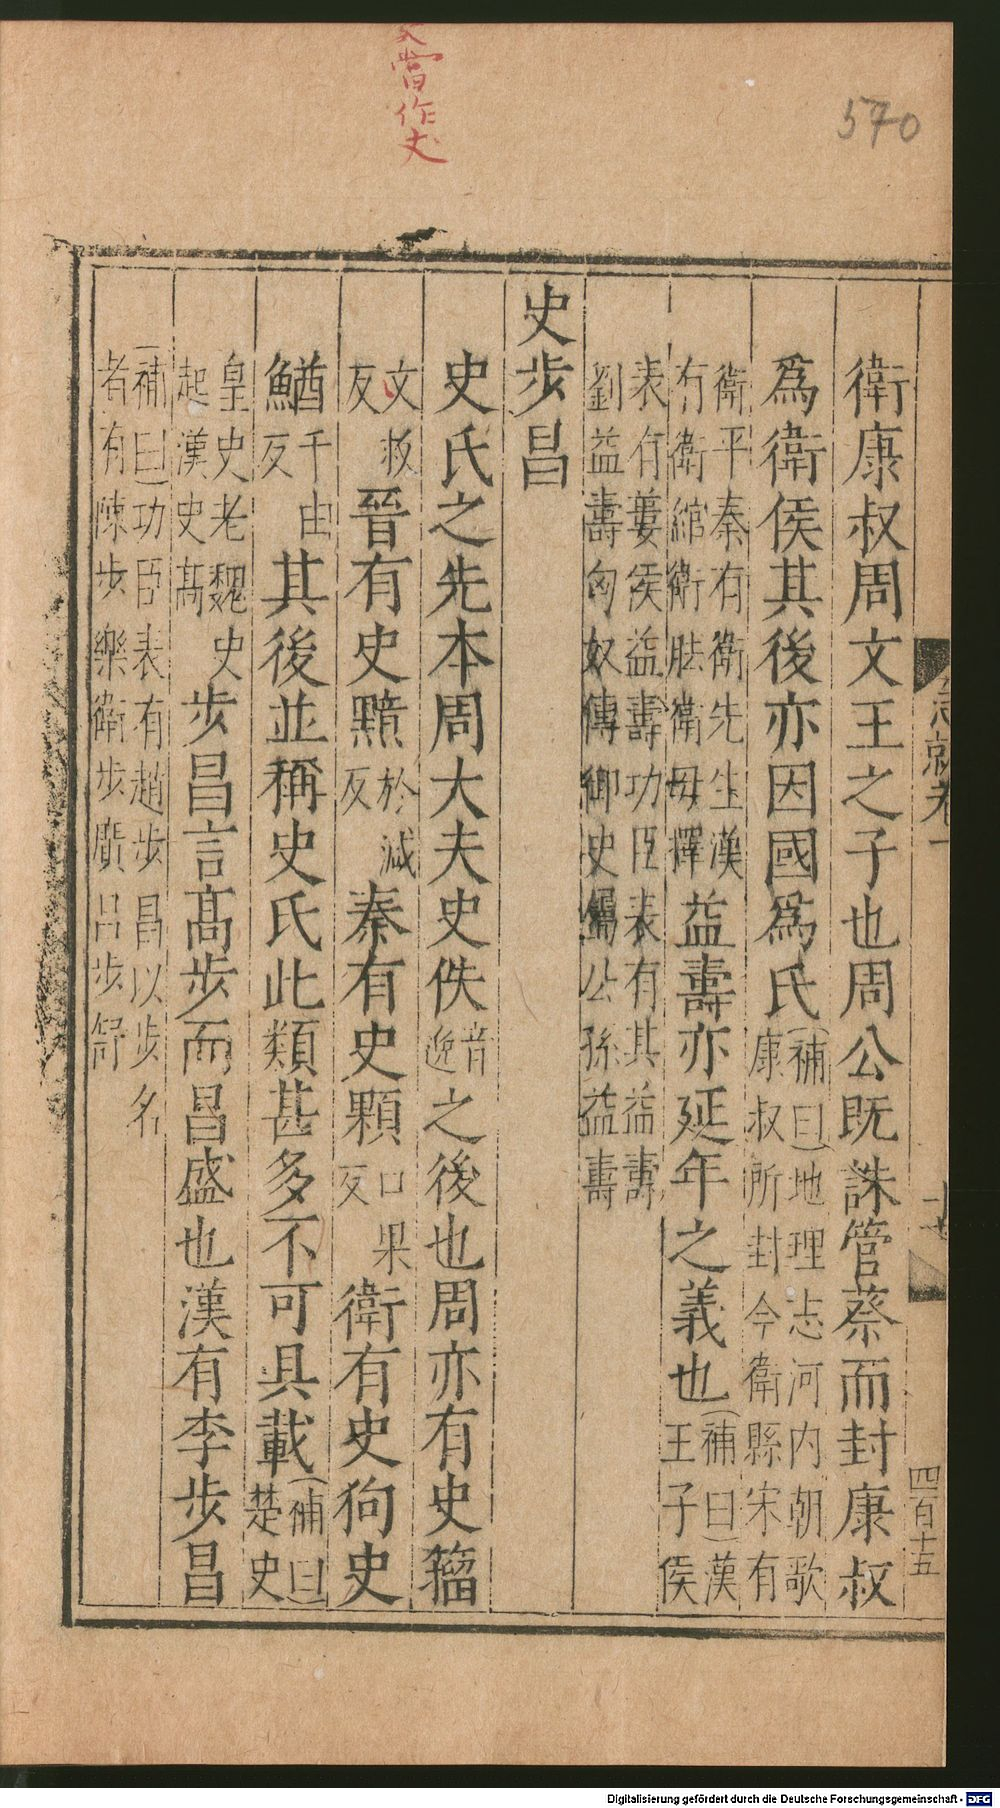 570
文當作丈
急就卷一
十七
四百十五
衛康叔周文王之子也周公既誅管蔡而封康叔
爲衛侯其後亦因國爲氏(補曰)地理志河内朝歌康叔所封今衛縣宋有
衛平秦有衛先生漢有衛綰衛胠衛毋擇益壽亦延年之義也(補曰)漢王子侯
表有蔞侯益壽功臣表有其益壽劉益壽匈奴傳御史屬公孫益壽
史步昌
史氏之先本周大夫史佚音逸之後也周亦有史籀
文救反晉有史黯於減反秦有史顆口果反衛有史狗史
鰌千由反其後並稱史氏此類甚多不可具載(補曰)楚史
皇史老魏史起漢史高步昌言高步而昌盛也漢有李步昌
(補曰)功臣表有趙步昌以步名者有陳步樂衛步廣呂步舒
Digitalisierung gefördert durch die Deutsche Forschungsgemeinschaft - DFG